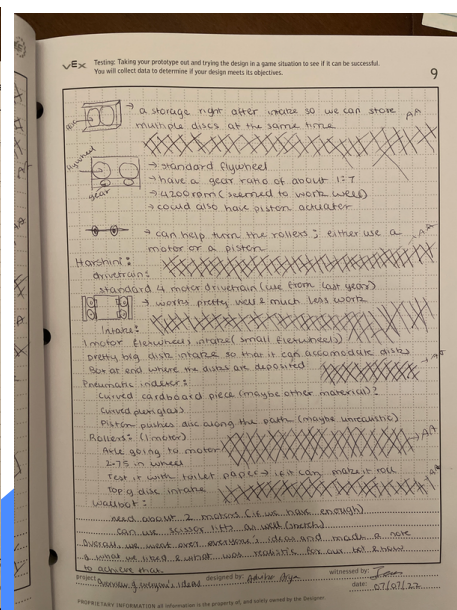 VEX Testing: Taking your prototype out and trying the design in a game situation to see if it can be successful.
You will collect data to determine if your design meets its objectives.
9
→ a storage right after intake so we can store AA
multiple discs at the same time
flywheel
→ standard flywheel
→ have a gear ratio of about 1:7
→ 4200rpm (seemed to work well)
gear
→ could also have piston actuater
→ can help turn the rollers; either use a AA
motor or a piston
Harshini:
drivetrain:
standard 4 motor drivetrain (use from last year)
→ works pretty well & much less work
Intake:
1 motor flexwheels intake (small flexwheels)
pretty big disk intake so that it can accomodate disks
Box at end where the disks are deposited
Pneumatic indexer:
curved cardboard piece (maybe other material)?
curved plexiglass
Piston pushes disc along the path (maybe unrealistic)
Rollers: (1 motor)
Axle going to motor AA
2.75 in wheel
Test it with toilet paper → if it can make it roll
Top of disc intake
Wallbot:
need about 2 motors (if we have enough)
can use scissor lifts as well (sketch)
Overall, we went over everyone's ideas and made a note
of what we liked & what was realistic for our bot & how
to achieve that
project Overview of everyone's ideas designed by: witnessed by:
date: 07/07/22
PROPRIETARY INFORMATION all information is the property of, and solely owned by the Designer.